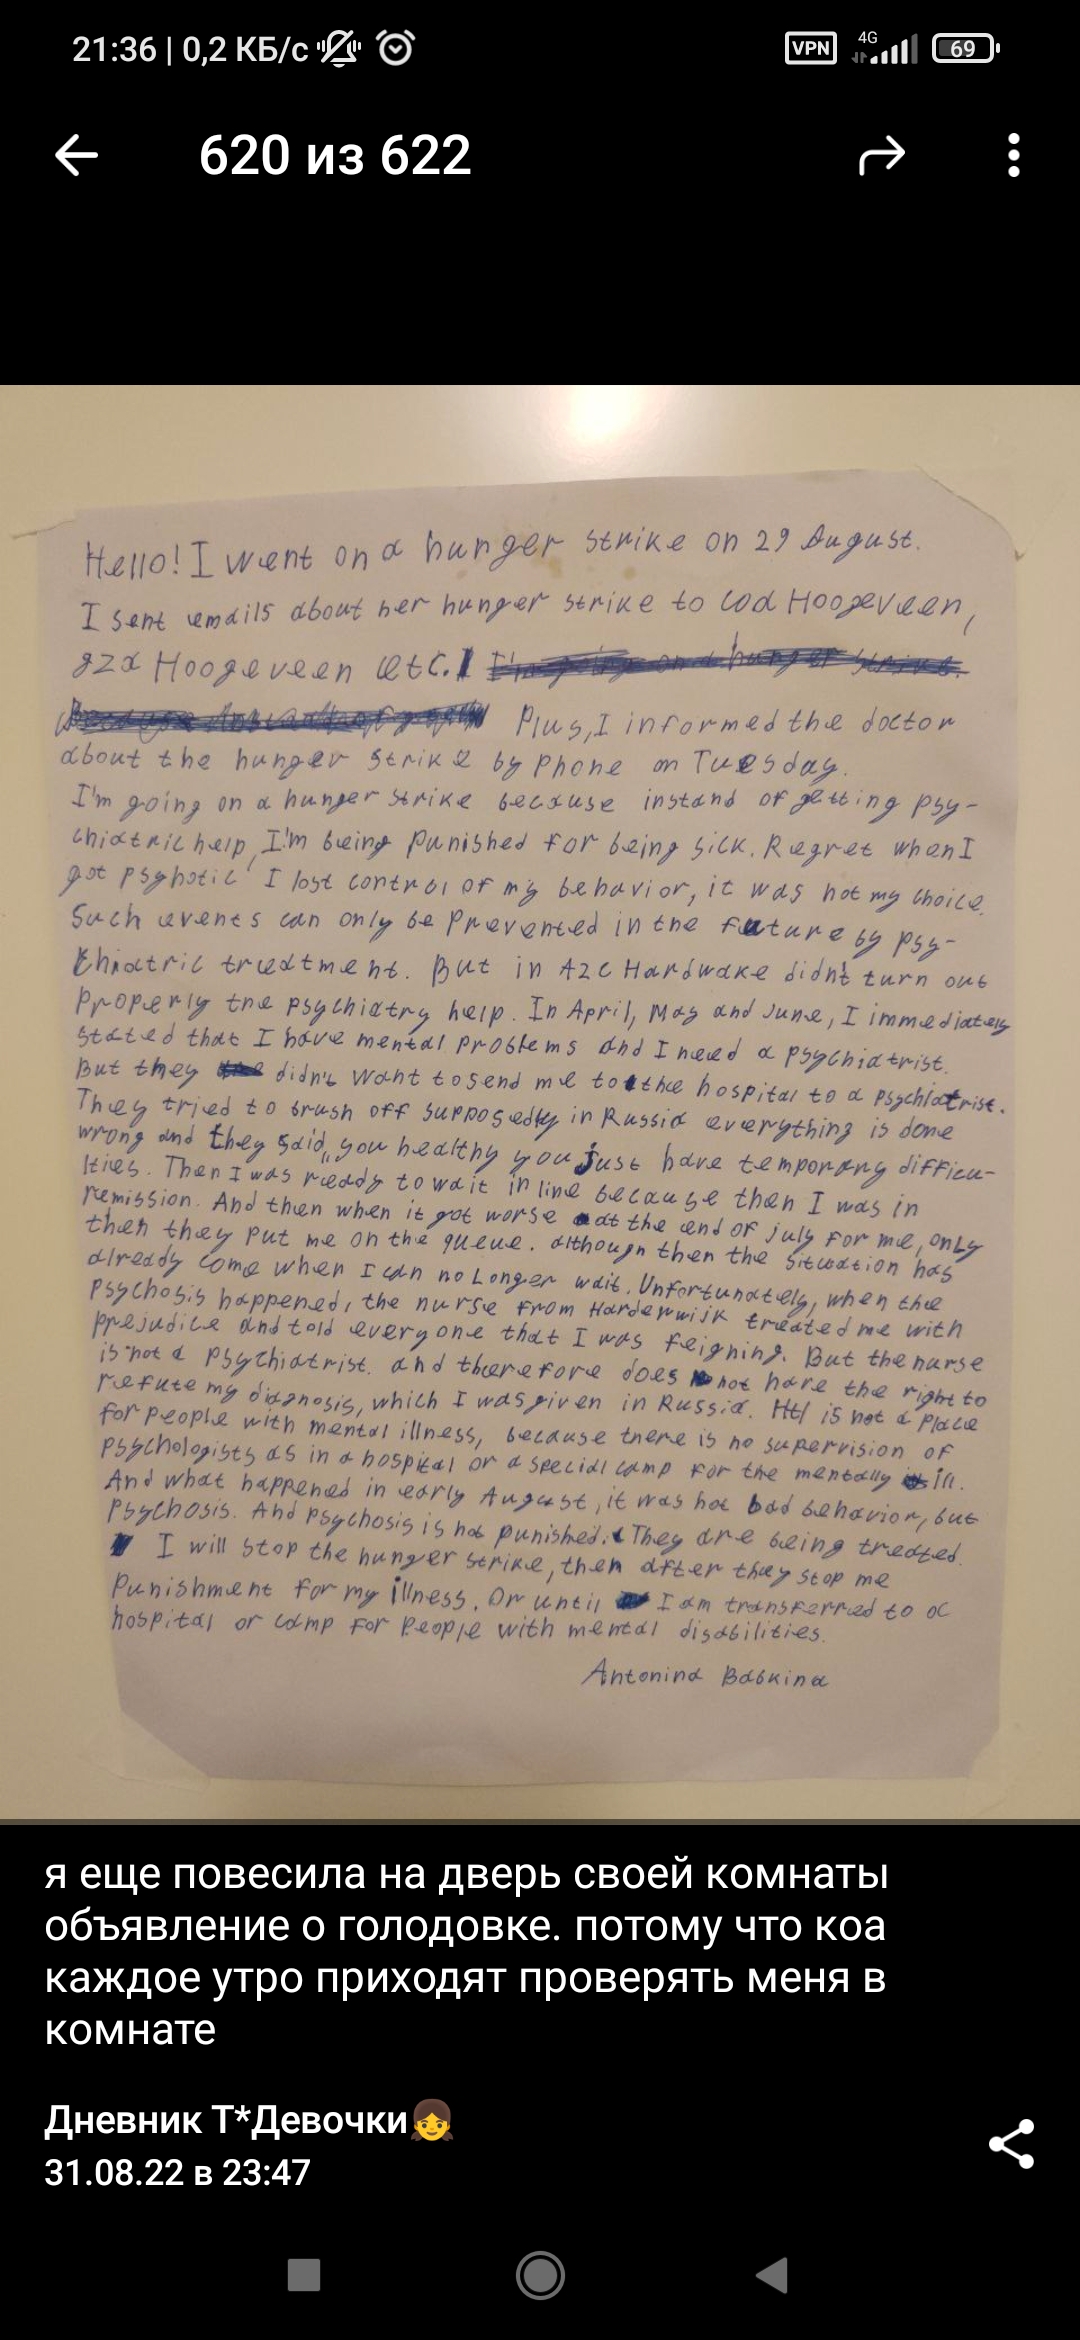 21:36 | 0,2 КБ/с
VPN 4G 69
620 из 622
Hello! I went on a hunger strike on 29 August.
I sent emails about her hunger strike to coa Hoogeveen,
gza Hoogeveen etc. I'm going on a hunger strike.
Plus, I informed the doctor
about the hunger strike by phone on Tuesday.
I'm going on a hunger strike because instand of getting psy-
chiatric help, I'm being punished for being sick. Regret when I
got psyhotic I lost control of my behavior, it was not my choice.
Such events can only be prevented in the future by psy-
chiatric treatment. But in AZC Hardwake didn't turn out
properly the psychiatry help. In April, May and June, I immediately
stated that I have mental problems and I need a psychiatrist.
But they didn't want to send me to the hospital to a psychiatrist.
They tried to brush off supposedly in Russia everything is done
wrong and they said „you healthy you just have temporary difficu-
lties. Then I was ready to wait in line because then I was in
remission. And then when it got worse at the end of july for me, only
then they put me on the queue. although then the situation has
already come when I can no longer wait. Unfortunately, when the
psychosis happened, the nurse from Harderwijk treated me with
prejudice and told everyone that I was feigning. But the nurse
is not a psychiatrist. and therefore does not have the right to
refute my diagnosis, which I was given in Russia. Htl is not a place
for people with mental illness, because there is no supervision of
psychologists as in a hospital or a special camp for the mentally ill.
And what happened in early August, it was not bad behavior, but
psychosis. And psychosis is not punished. They are being treated.
I will stop the hunger strike, then after they stop me
punishment for my illness. Or until I am transferred to a
hospital or camp for people with mental disabilities.
Antonina Babkina
я еще повесила на дверь своей комнаты
объявление о голодовке. потому что коа
каждое утро приходят проверять меня в
комнате
Дневник Т*Девочки
31.08.22 в 23:47